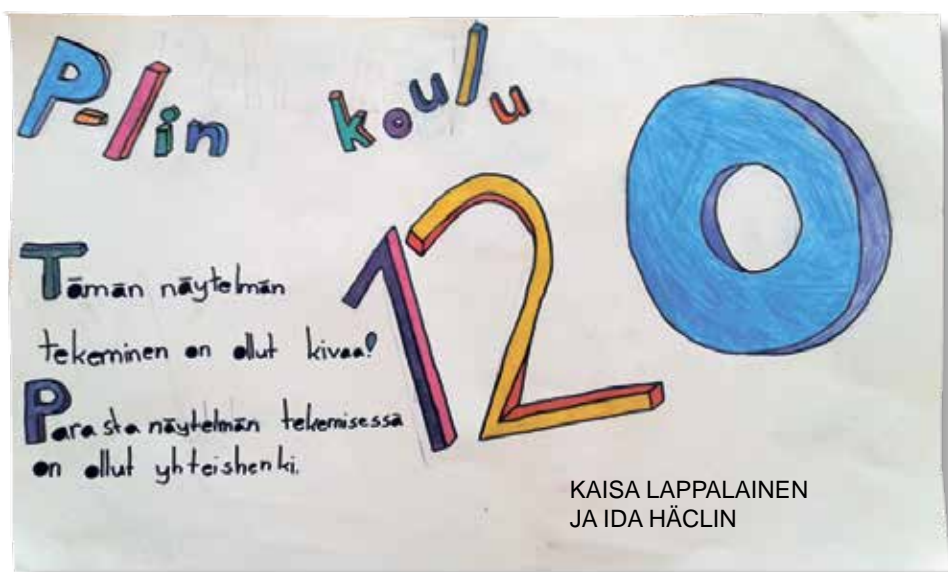 P-Iin koulu
120
Tämän näytelmän
tekeminen on ollut kivaa!
Parasta näytelmän tekemisessä
on ollut yhteishenki.
KAISA LAPPALAINEN
JA IDA HÄCLIN